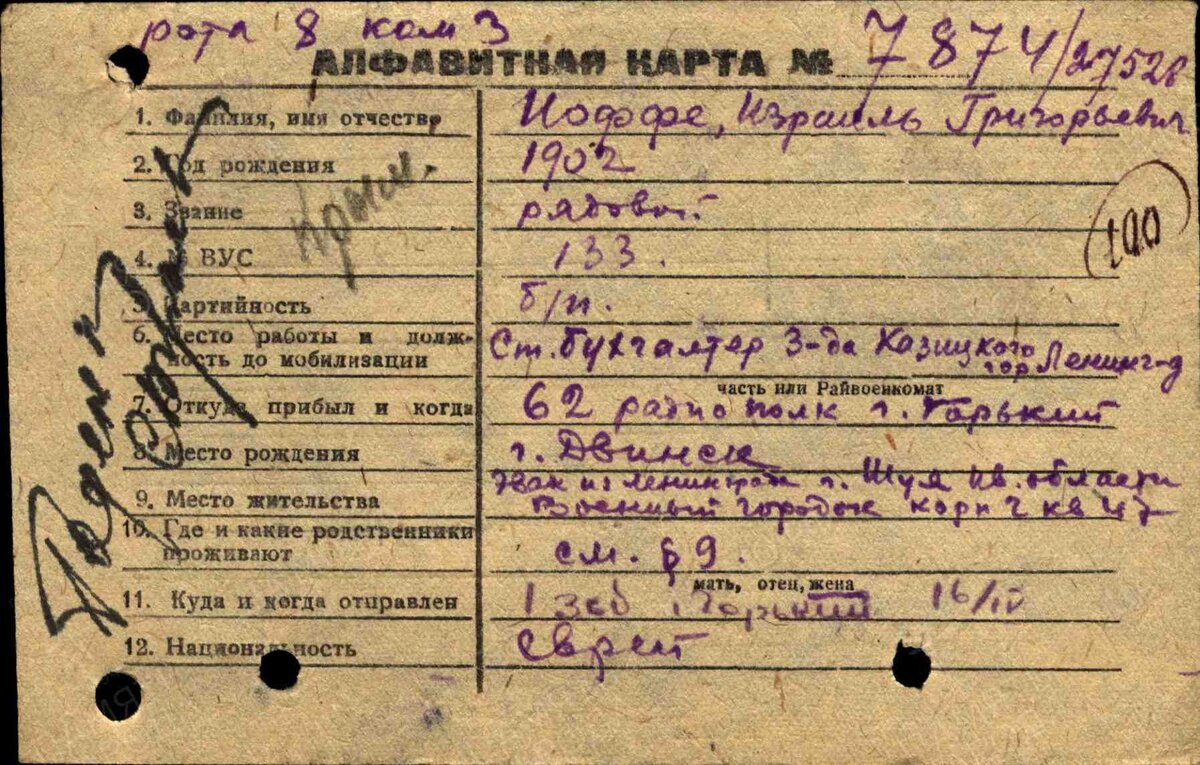 рота 8 ком 3
АЛФАВИТНАЯ КАРТА № 7874/27526
1. Фамилия, имя отчество Иоффе, Израиль Григорьевич
2. Год рождения 1902
3. Звание рядовой
100
4. № ВУС 133.
5. Партийность б/п.
6. Место работы и долж-
ность до мобилизации Ст. бухгалтер З-да Казицкого гор Ленинг-д
часть или Райвоенкомат
7. Откуда прибыл и когда 62 радио полк г. Горький
8. Место рождения г. Двинск
эвак из Ленинграда г. Шуя Ив. области
9. Место жительства Военный городок корп 2 кв 47
10. Где и какие родственники
проживают см. § 9.
мать, отец, жена
11. Куда и когда отправлен 1 зсб Горький 16/IV
12. Национальность еврей